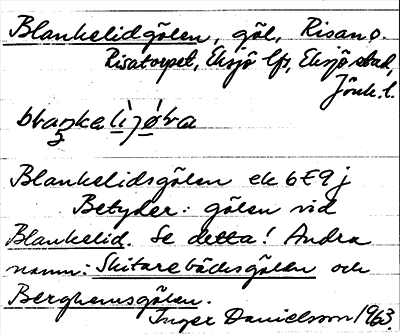 Blankelidgölen, göl, Risan o.
Risatorpet, Eksjö lfs, Eksjö stad,
Jönk. l.
Blankelidsgölen ek 6E9j
Betyder: gölen vid
Blankelid. Se detta! Andra
namn: Skitarebäcksgölen och
Berghemsgölen.
Inger Danielsson 1963.